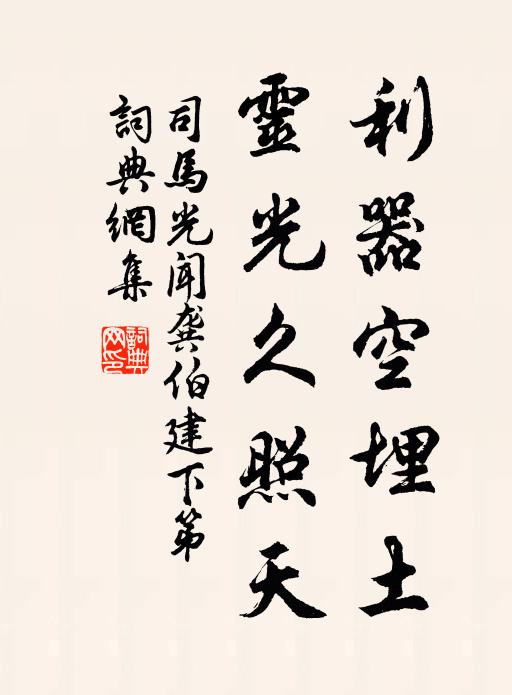 利器空埋土
靈光久照天
司馬光聞龔伯建下第
詞典網集
詞典網印